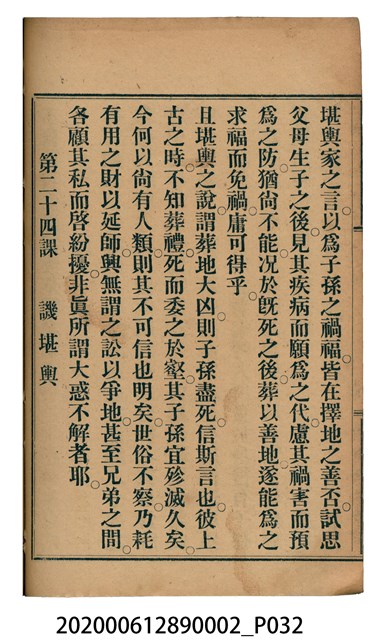 堪輿家之言以爲子孫之禍福皆在擇地之善否試思
父母生子之後見其疾病而願爲之代慮其禍害而預
爲之防猶尙不能况於旣死之後葬以善地遂能爲之
求福而免禍庸可得乎
且堪輿之說謂葬地大凶則子孫盡死信斯言也彼上
古之時不知葬禮死而委之於壑其子孫宜殄滅久矣
今何以尙有人類則其不可信也明矣世俗不察乃耗
有用之財以延師興無謂之訟以爭地甚至兄弟之間
各顧其私而啓紛擾非眞所謂大惑不解者耶
第二十四課　譏堪輿
202000612890002_P032